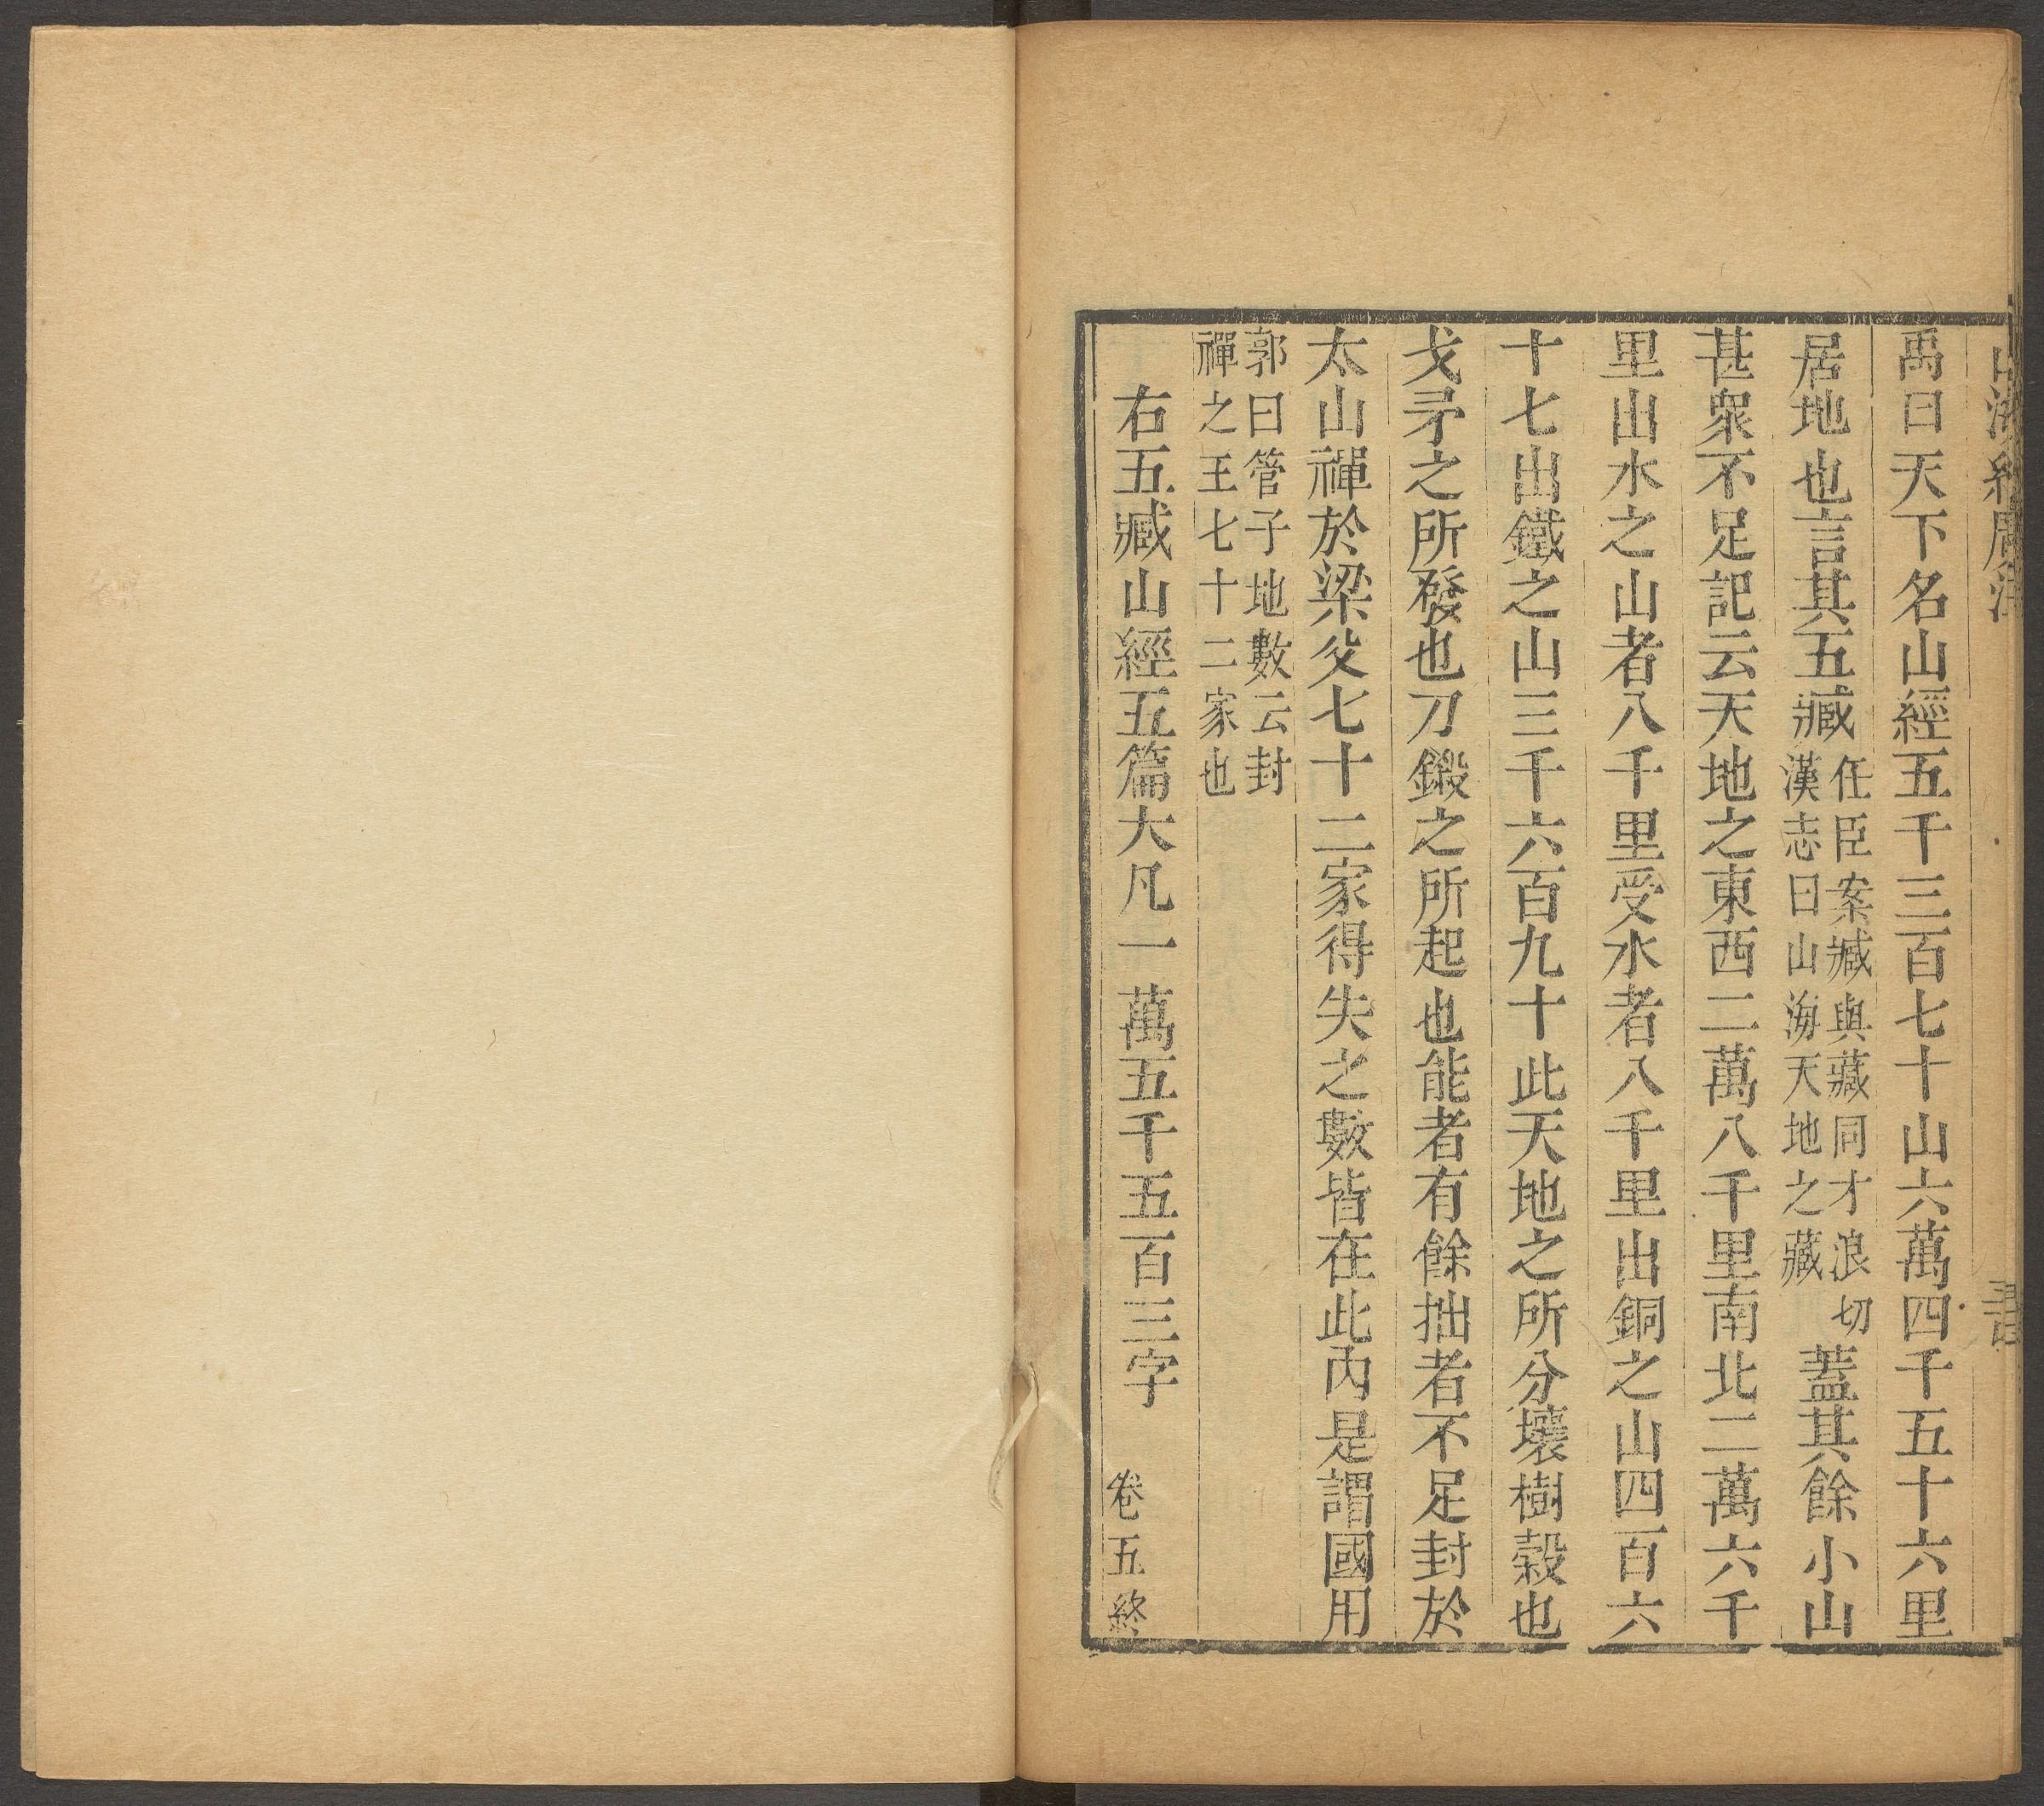 山海經廣注
禹曰天下名山經五千三百七十山六萬四千五十六里
居地也言其五臧任臣案臧與藏同才浪切漢志曰山海天地之藏蓋其餘小山
甚眾不足記云天地之東西二萬八千里南北二萬六千
里出水之山者八千里受水者八千里出銅之山四百六
十七出鐵之山三千六百九十此天地之所分壤樹穀也
戈矛之所發也刀鎩之所起也能者有餘拙者不足封於
太山禪於梁父七十二家得失之數皆在此內是謂國用
郭曰管子地數云封
禪之王七十二家也
右五臧山經五篇大凡一萬五千五百三字
卷五終